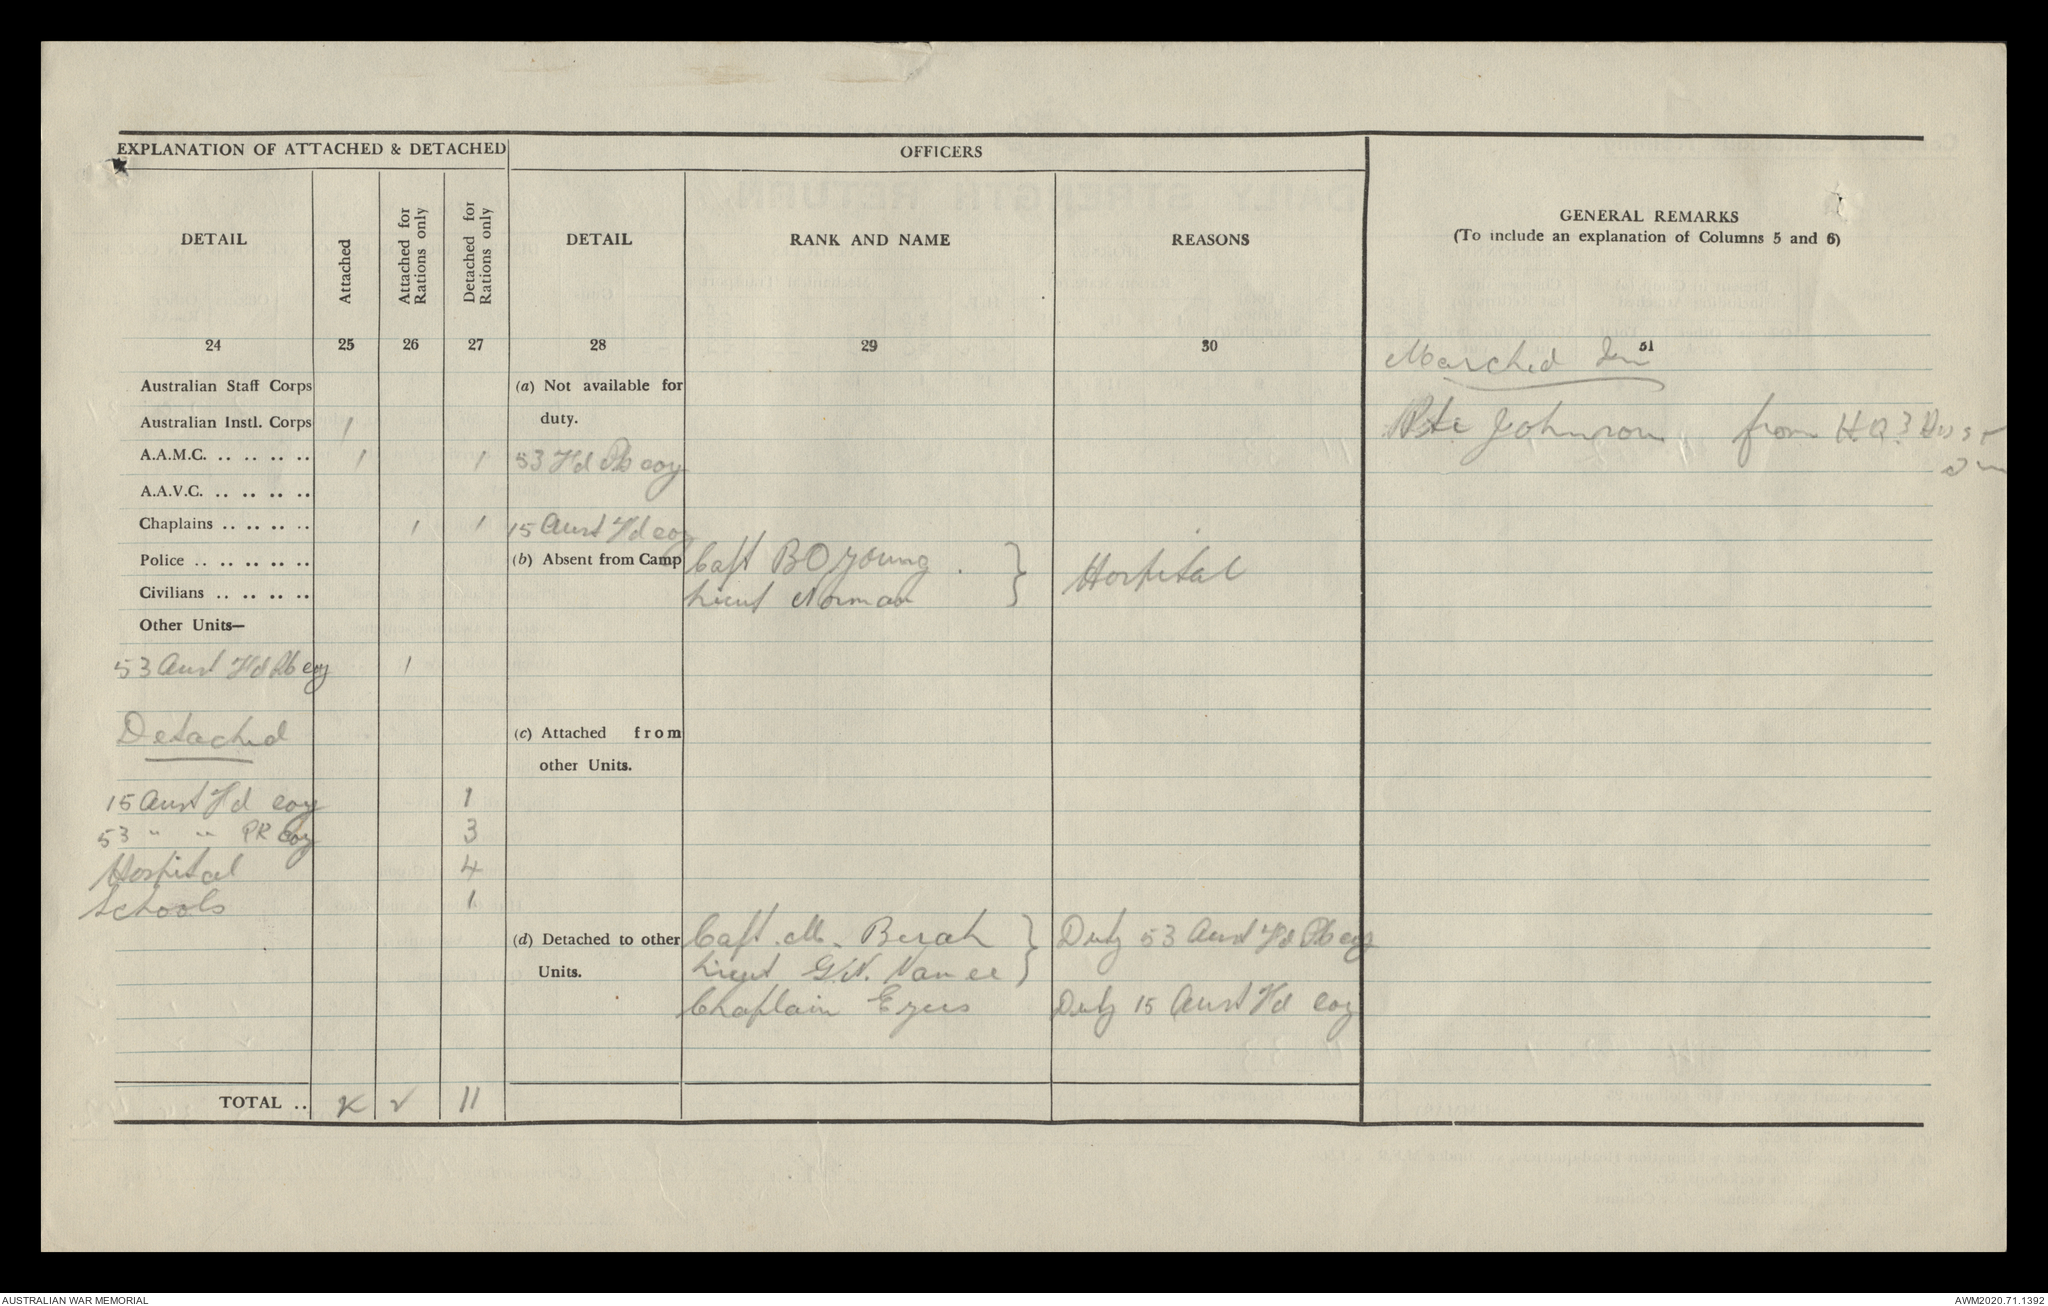 EXPLANATION OF ATTACHED & DETACHED
OFFICERS
DETAIL
Attached
Attached for Rations only
Detached for Rations only
DETAIL
RANK AND NAME
REASONS
GENERAL REMARKS
(To include an explanation of Columns 5 and 6)
24 25 26 27 28 29 30 31
Marched In
Australian Staff Corps
(a) Not available for
duty.
Australian Instl. Corps 1
Pte Johnson from HQ 3
A.A.M.C. .. .. .. .. 1 1 53 Fd Pk coy
A.A.V.C. .. .. .. ..
Chaplains .. .. .. .. 1 1 15 Aust Fd coy
Police .. .. .. .. .. (b) Absent from Camp Capt BO Young } Hospital
Civilians .. .. .. .. Lieut Norman
Other Units—
53 Aust Fd Pk coy 1
Detached
(c) Attached from
other Units.
15 Aust Fd coy 1
53 " " PK coy 3
Hospital 4
Schools 1
(d) Detached to other Capt. M. Berah } Duty 53 Aust Fd Pk coy
Units. Lieut G.N. Vance
Chaplain Eyers Duty 15 Aust Fd coy
TOTAL .. 11
AUSTRALIAN WAR MEMORIAL
AWM2020.71.1392